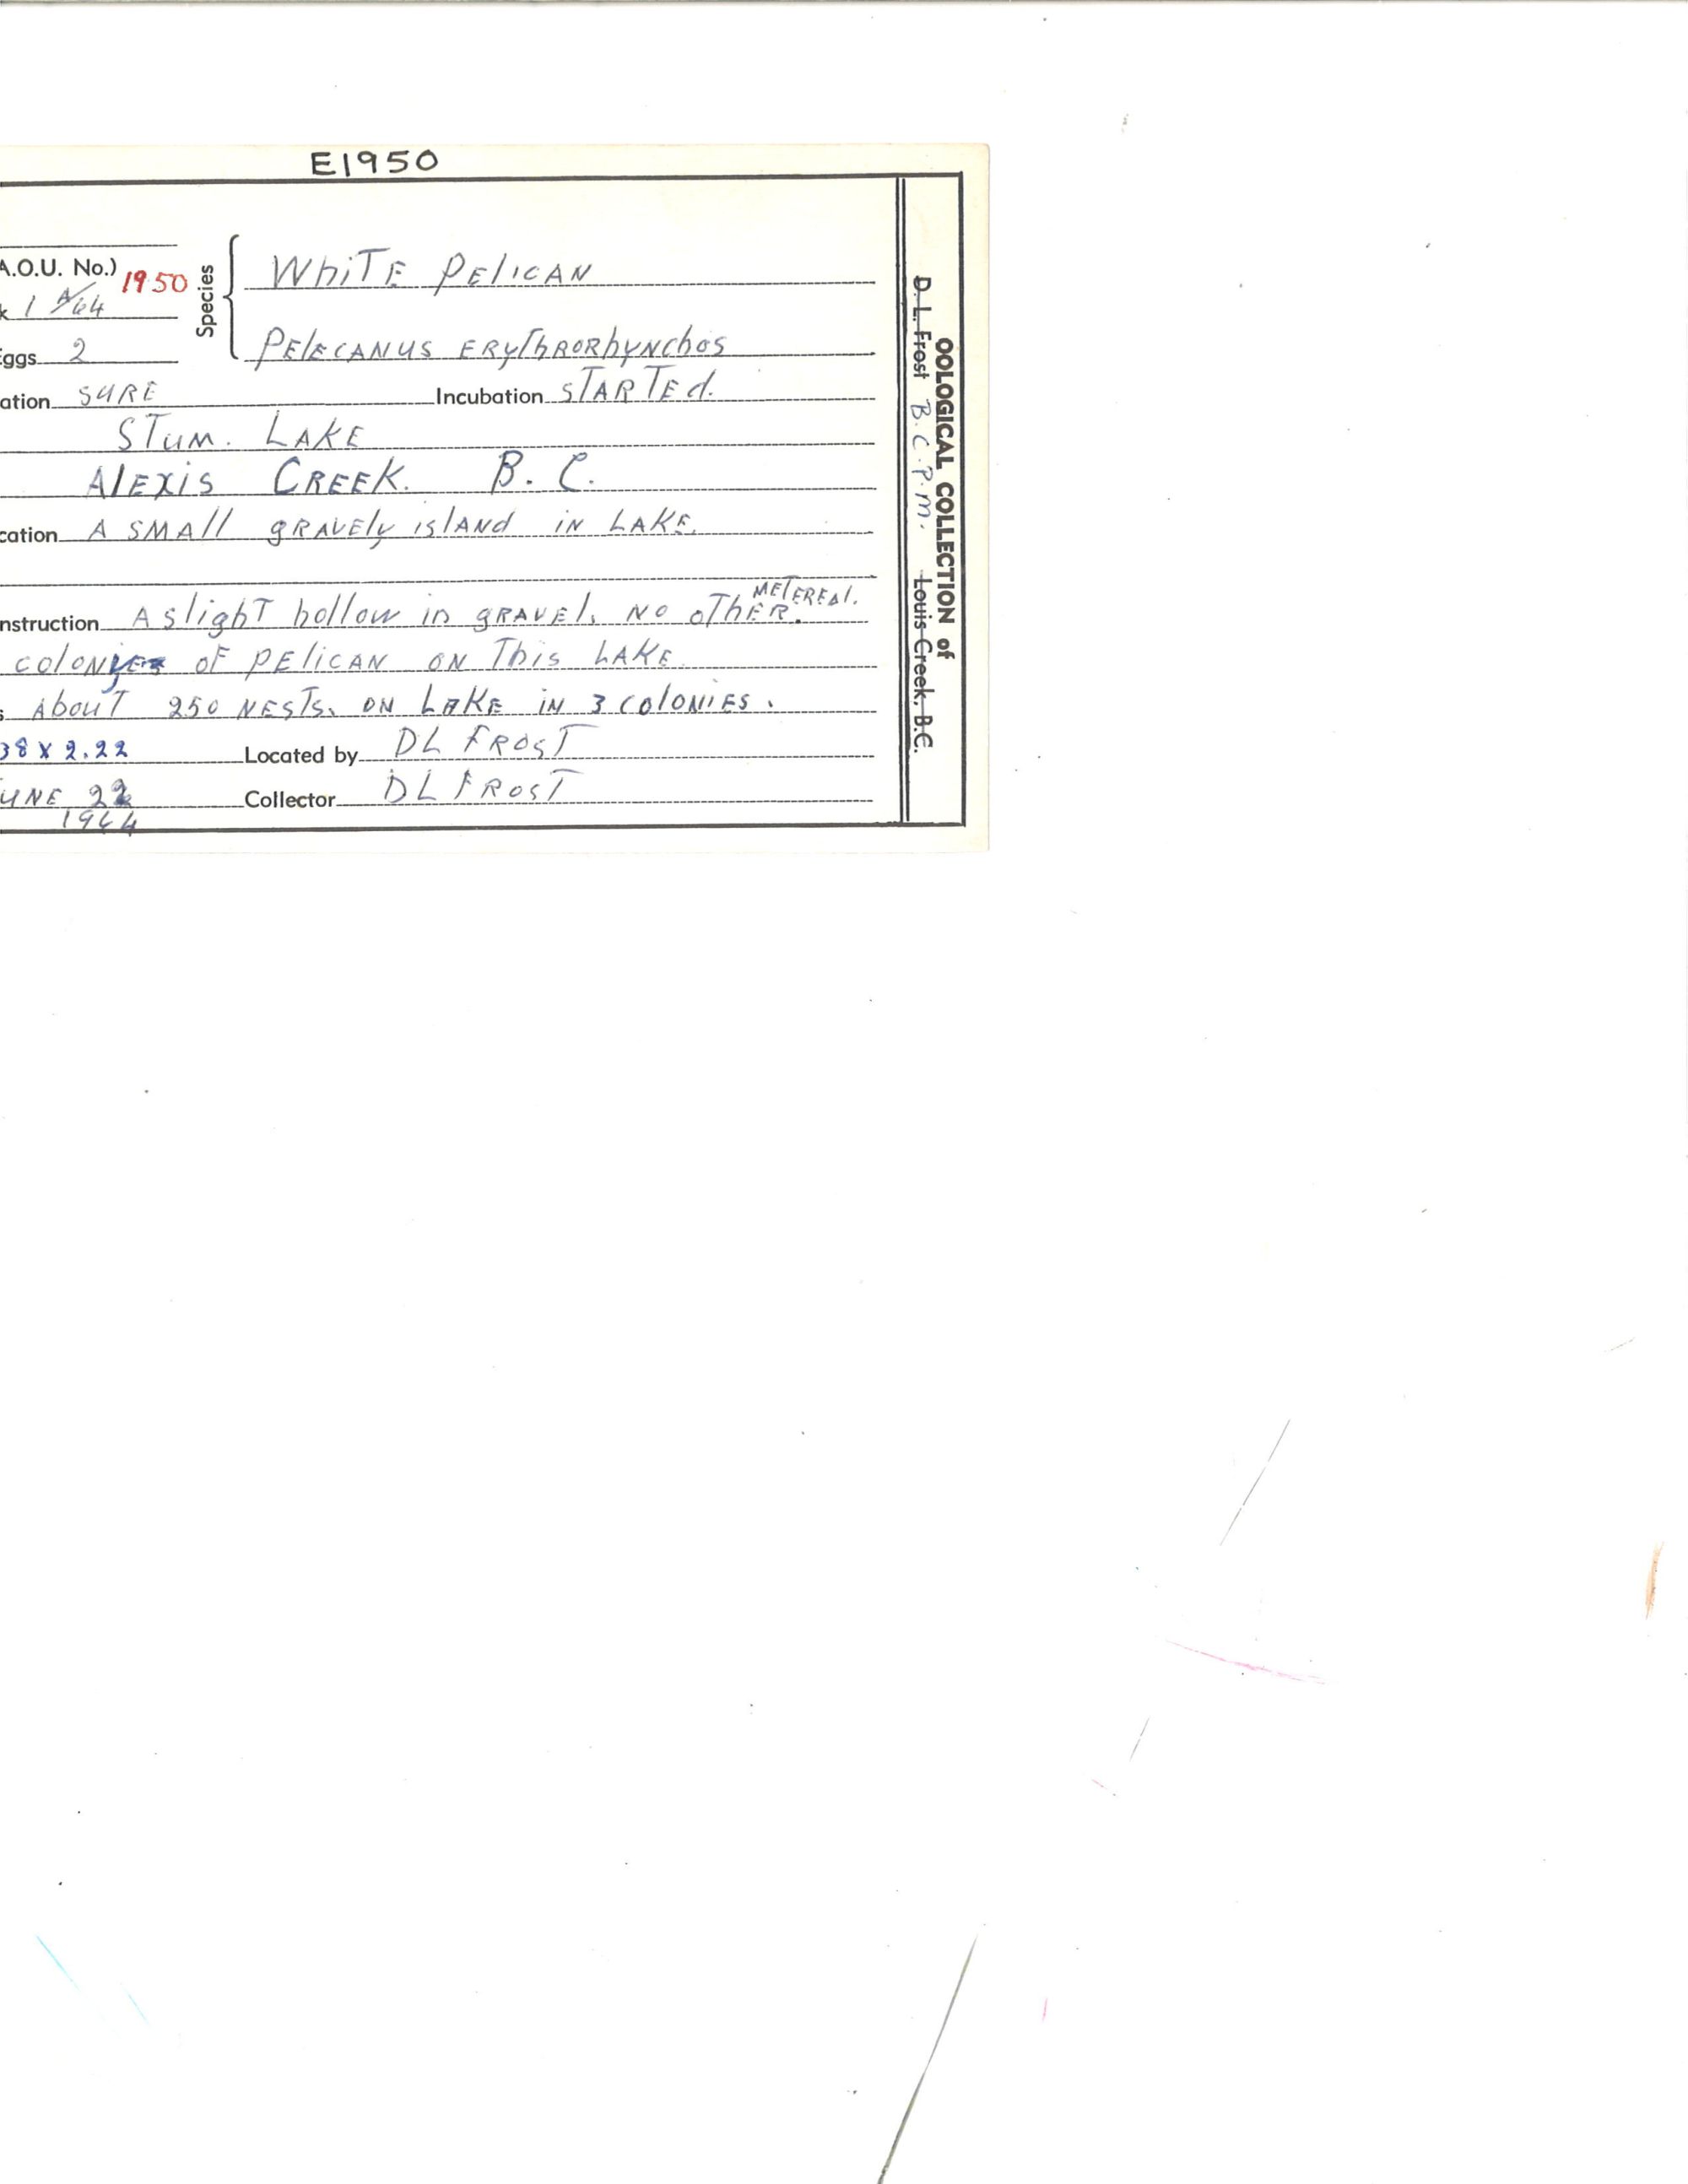 E1950
A.O.U. No.) 1950
Species { White Pelican
1 A/64
Eggs 2
Pelecanus erythrorhynchos
ation SURE Incubation STARTEd.
STUM. LAKE
Alexis Creek. B. C.
cation A small gravely island in Lake.
nstruction A slight hollow in gravel. No other metereal.
colonies of pelican on This Lake
s About 250 nests. on Lake in 3 colonies.
38 x 2.22 Located by DL Frost
une 22 Collector DL Frost
OOLOGICAL COLLECTION of
D. L. Frost B.C.P.M. Louis Creek, B.C.